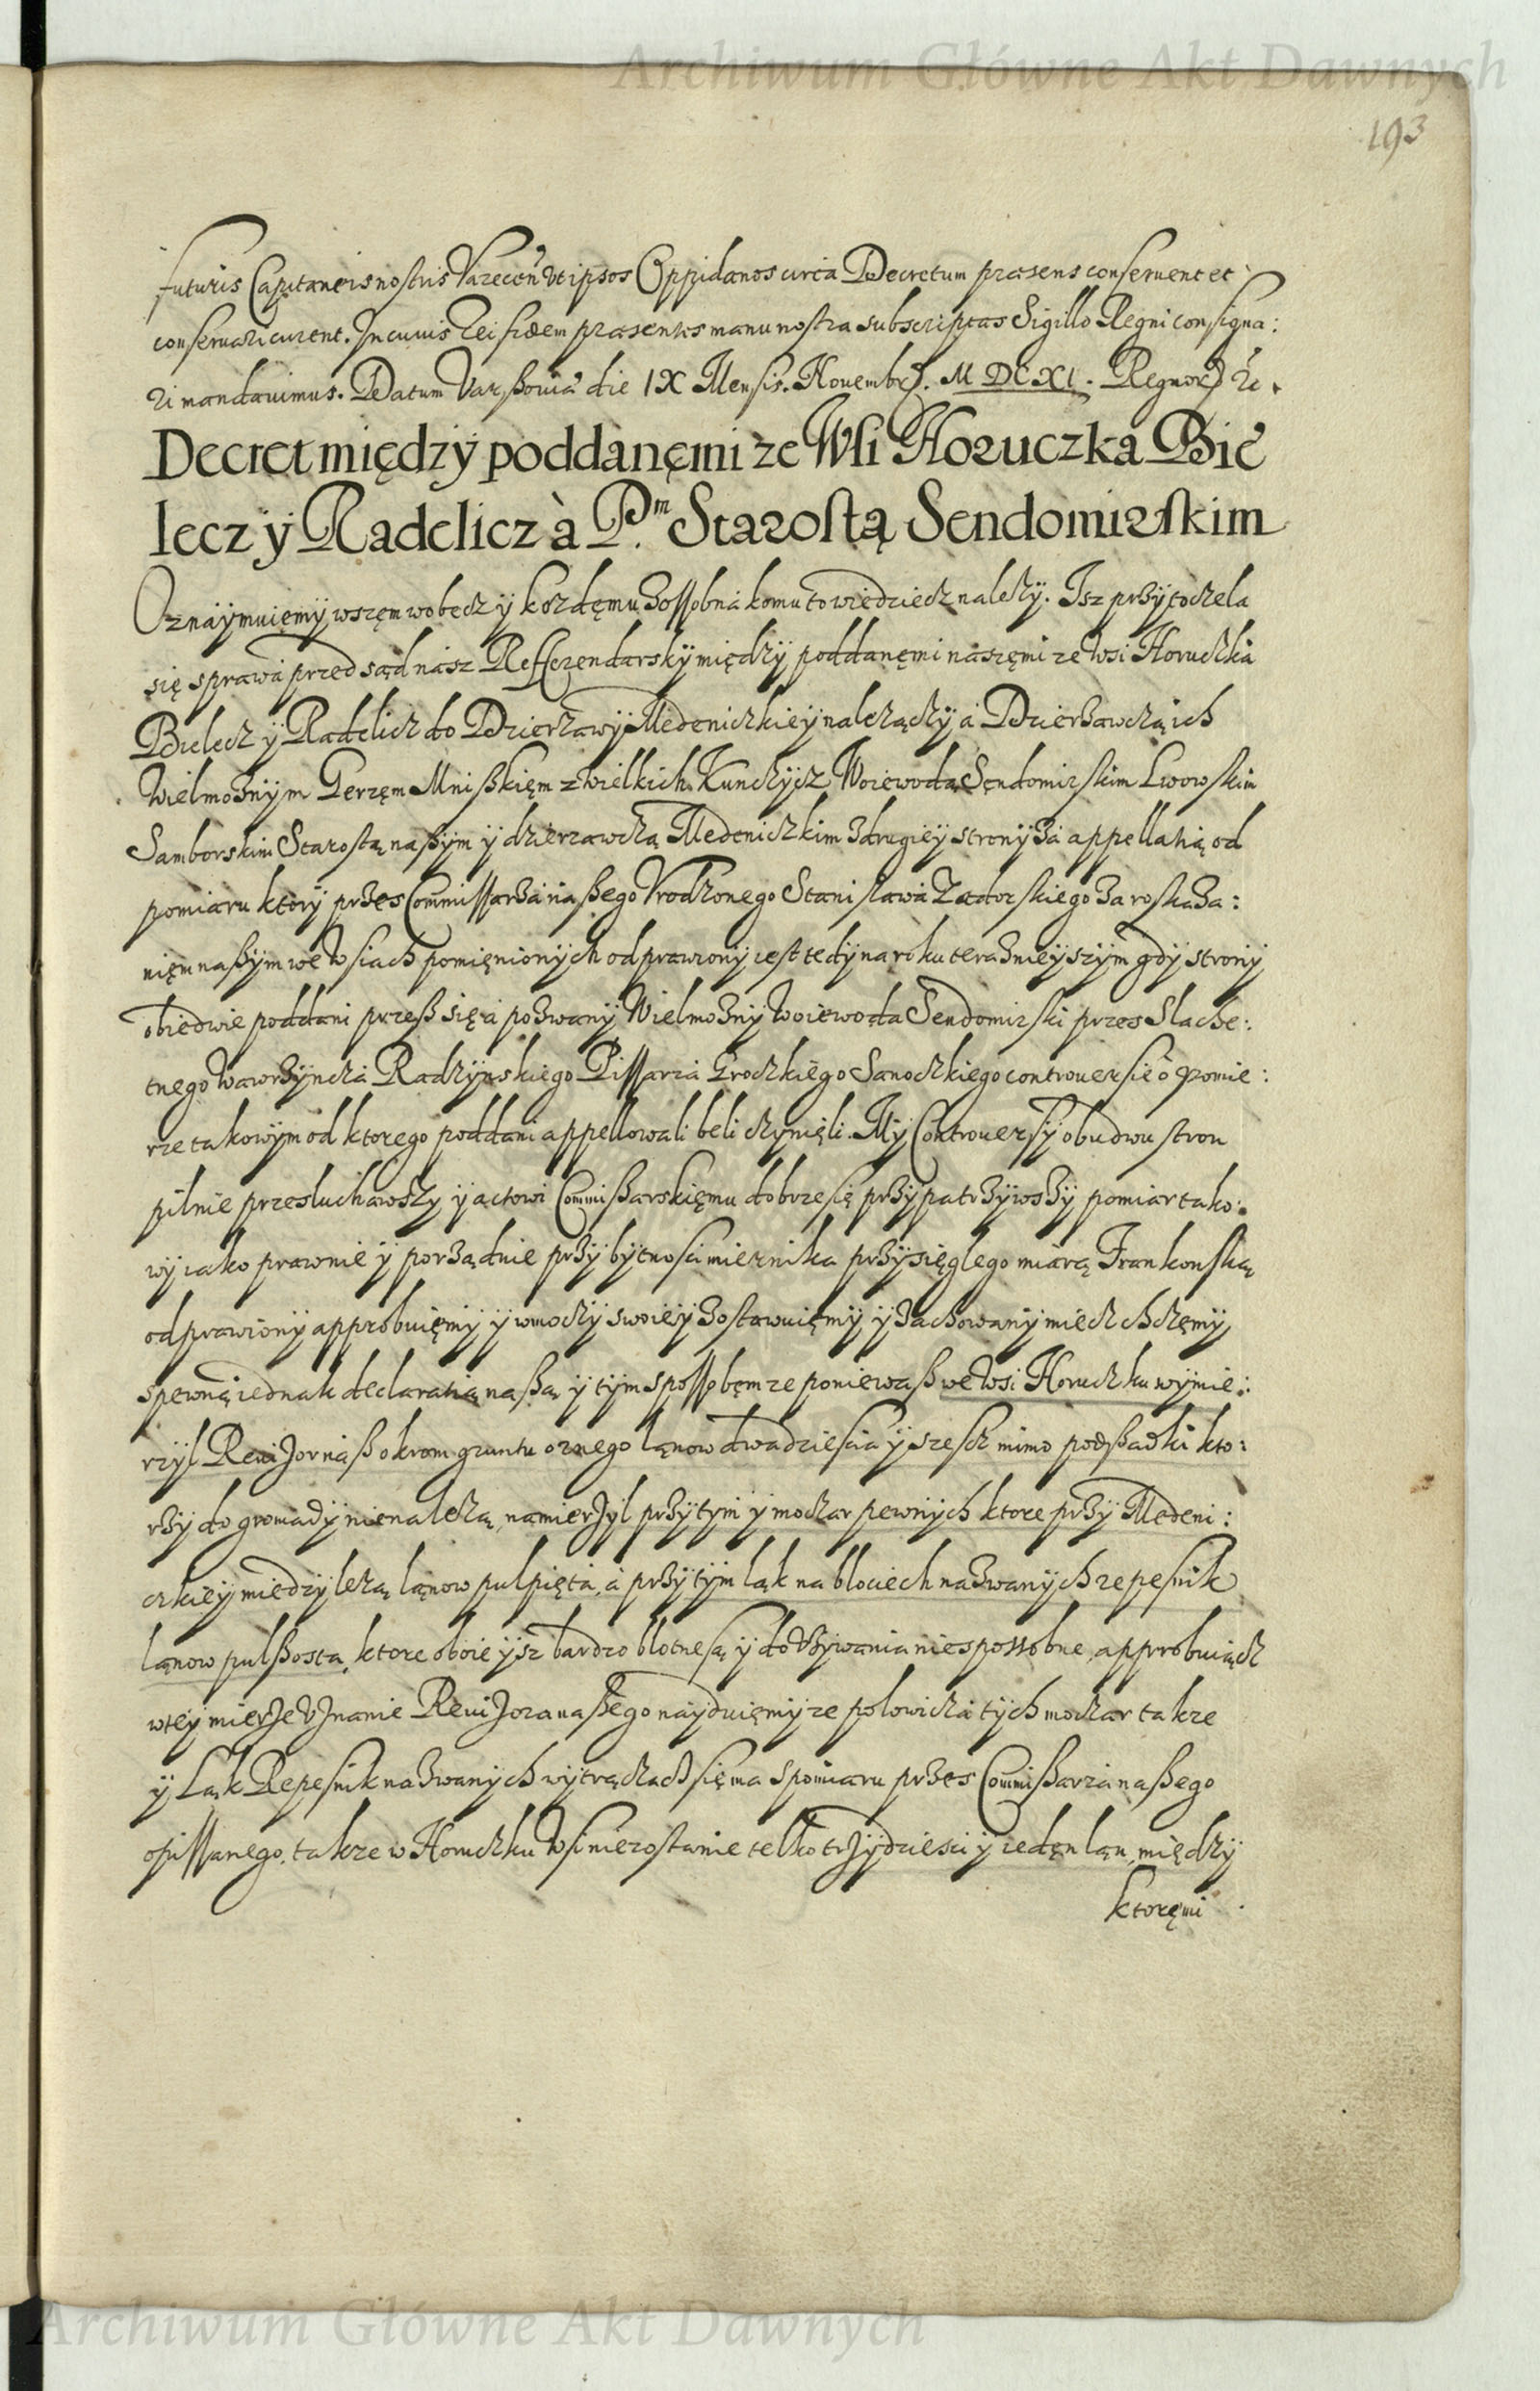 Archiwum Główne Akt Dawnych
193
futuris Capitaneis nostris Varecen̄ Vt ipsos Oppidanos circa Decretum præsens conseruent et
conseruari curent. In cuius rei fidem præsentes manu nostra subscriptas Sigillo Regni consigna:
ri mandauimus. Datum Varßouiæ die IX Mensis. Nouembr. M DC XI. Regnor
Decret między poddanęmi ze Wsi Horuczka Bie
lecz ÿ Radelicz à P.m Starostą Sendomirskim
Oznaÿmuięmÿ wszęm wobecz ÿ kożdęmu zossobna komu to wiedziecz należÿ. Isz przÿtoczela
się sprawa przed sąd nasz Refferendarskÿ międzÿ poddanęmi naszęmi ze Wsi Horuczka
Bielecz ÿ Radelicz do Dzierżawÿ Medeniczkieÿ należączÿ a Dzierżawczą ich
Wielmożnÿm Gerzęm Mnißkięm z wielkich Kunczÿcz Woiewodą Sendomirskim Lwowskim
Samborskim Starostą naßÿm ÿ dzierzawczą Medeniczkim z drugieÿ stronÿ za appellatią od
pomiaru ktorÿ przes Commissarza naßego Vrodzonego Stanisława Zatorskiego za roskaza:
nięm naßÿm we Wsiach pomięnionÿch odprawionÿ iest tedÿ na roku teraznieÿszÿm gdÿ stronÿ
obiedwie poddani przeß się a pozwanÿ Wielmożnÿ Woiewoda Sendomirski przes Slache:
tnego Wawrzÿncza Radzÿnskiego Pissarza Grodzkiego Sanoczkiego controuersie o pomie:
rze takowÿm od ktorego poddani appellowali beli czÿnięli. Mÿ Controuersÿ obudwu stron
pilnie przesłuchawszÿ ÿ actowi Commißarskięmu dobrze się przÿpatrzÿwszÿ pomiar tako:
wÿ iako prawnie ÿ porządnie przÿ bÿtnosci miernika przÿsięgłego miarą Frankonską
odprawionÿ approbuięmÿ ÿ w moczÿ swoieÿ zostawuięmÿ ÿ zachowanÿ miecz chczęmÿ,
s pewną iednak declaratią naßą ÿ tÿm spossobęm ze poniewaß we Wsi Horuczku wÿmie:
rzÿł Reuizor naß okrom gruntu ornego łąnow dwadziescia ÿ szescz mimo podßadki kto:
rzÿ do gromadÿ nie należą, namierzÿł przÿ tÿm ÿ moczar pewnÿch ktore przÿ Medeni:
czkieÿ miedzÿ leżą łąnow pułpięta, à przÿ tÿm łąk na błociech nazwanÿch Repesnik
łąnow pułßosta, ktore oboie ÿsz bardzo błotne są ÿ do Vżÿwania niesposobne, approbuiącz
w teÿ mierze Vznanie Reuizora naßego naÿduięmÿ ze połowicza tÿch moczar takze
ÿ Łąk Repesnik nazwanÿch wÿtrączacz się ma s pomiaru przes Commißarza naßego
opissanego, takze w Horuczku Wsi nie zostanie telko trzÿdziesci ÿ ieden łąn, międzÿ
ktoręmi
Archiwum Główne Akt Dawnych